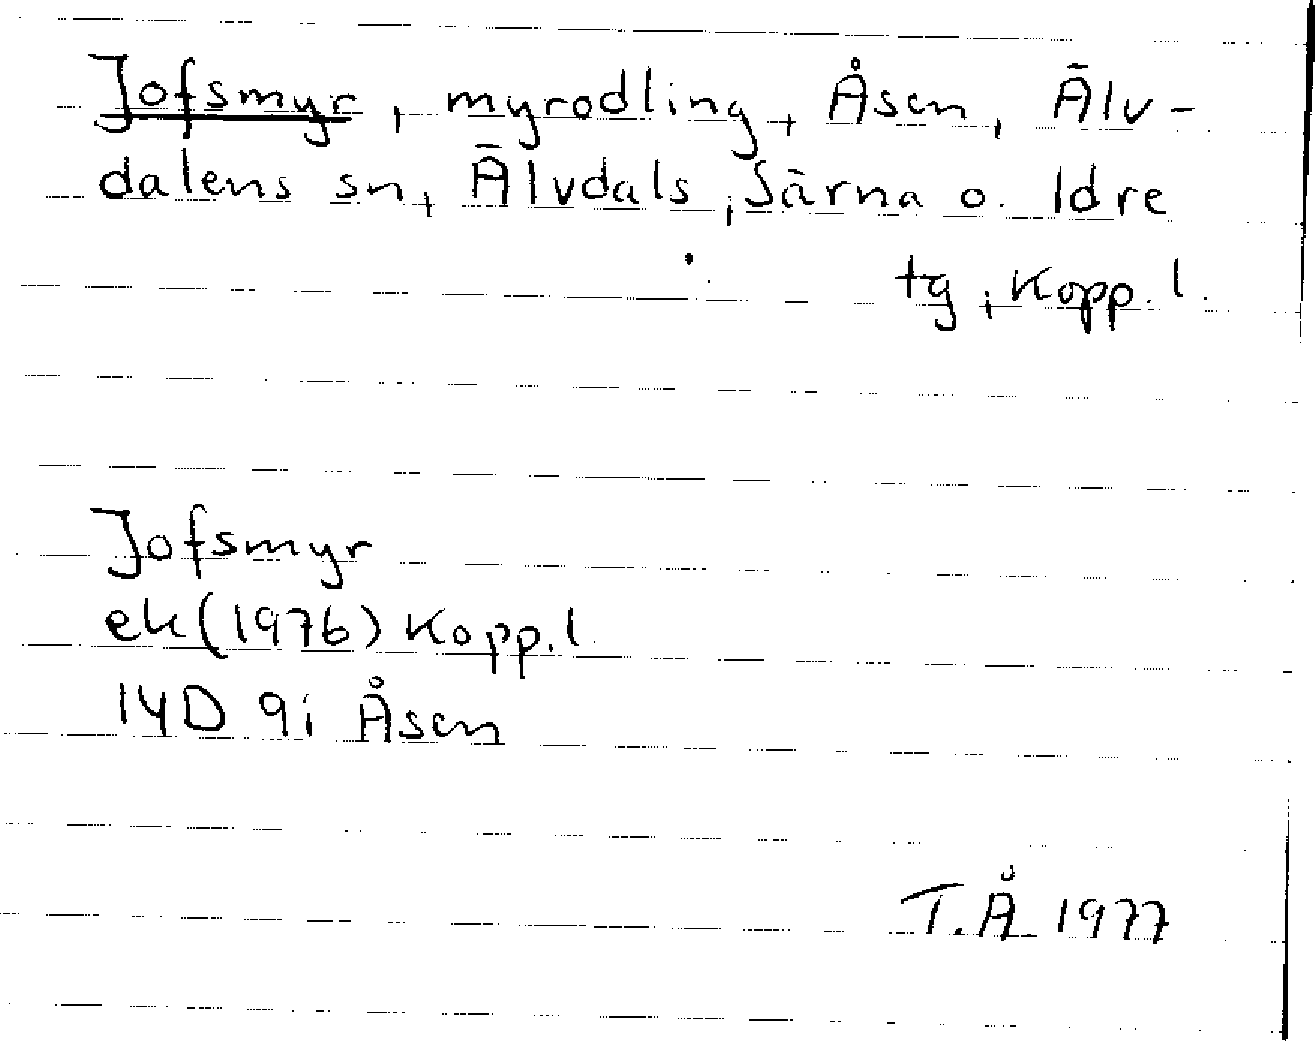 Jofsmyr, myrodling, Åsen, Älv-
dalens sn, Älvdals, Särna o. Idre
tg, Kopp. l.
Jofsmyr
ek (1976) Kopp. l.
14D 9i Åsen
T.Å 1977